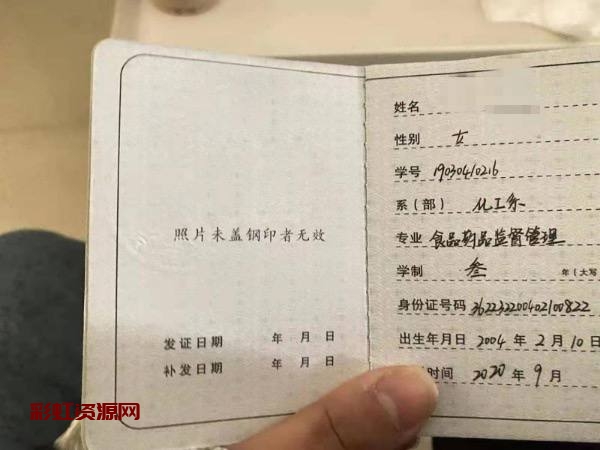 照片未盖钢印者无效
发证日期 年 月 日
补发日期 年 月 日
姓名
性别 女
学号 1903040216
系(部) 化工系
专业 食品药品监督管理
学制 叁 年(大写
身份证号码 362232200402100822
出生年月日 2004 年 2 月 10 日
时间 2020 年 9 月
彩虹资源网